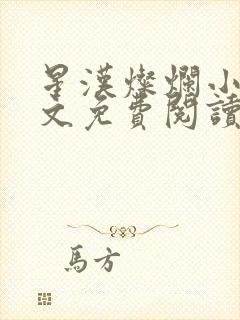 星漢燦爛小
文免費閱讀
馬方